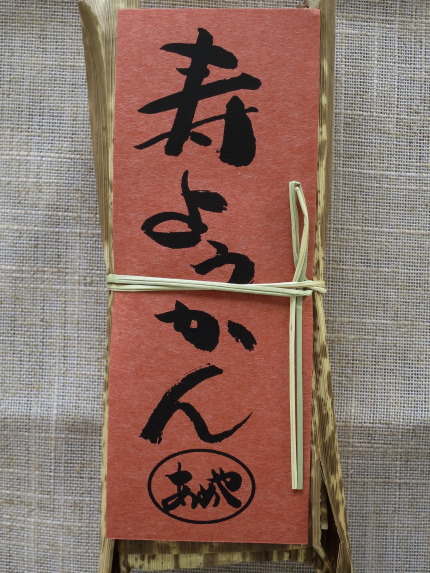 寿ようかん
あめや